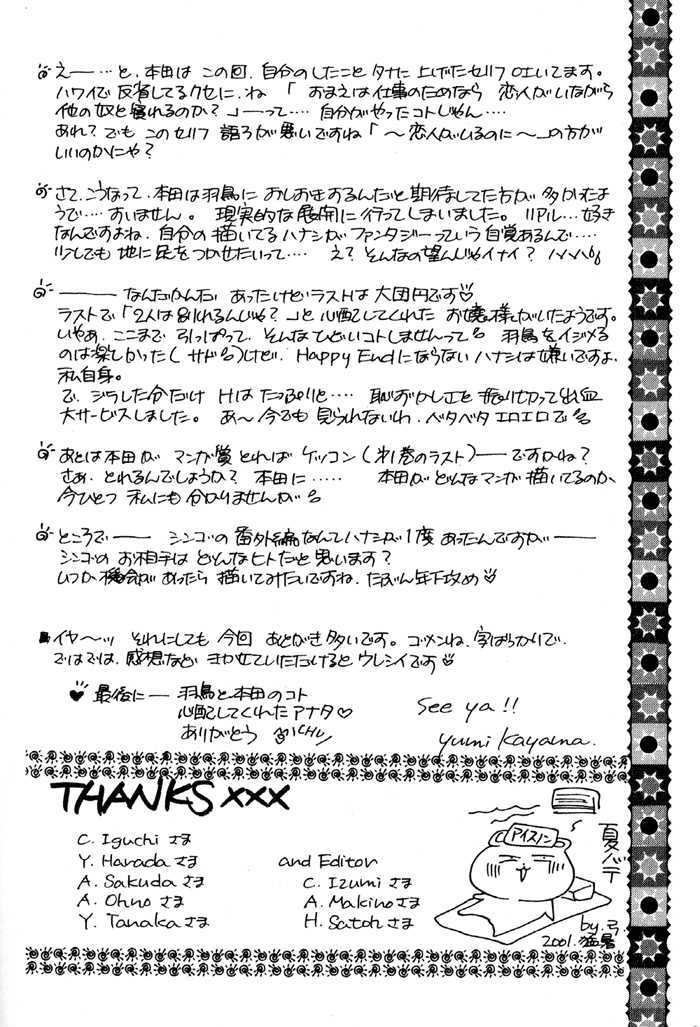 えー…と、本田は この回、自分のしたこと タナに 上げたセリフ 吐いてます。
ハワイで 反省してるクセに、ね 「おまえは仕事のためなら 恋人がいながら
他の奴と寝れるのか？」ーって…. 自分がやったコトじゃん….
あれ？ でも このセリフ 語ろが悪いですね「〜恋人がいるのに〜」の方が
いいのかにゃ？
さて、こうなって、本田は羽鳥に おしおきするんだと期待してた方が 多かったよ
うで….すいません。 現実的な展開に行ってしまいました。リアル…好き
なんですよね、自分の描いてるハナシがファンタジーっていう自覚あるんで….
少しでも 地に足をつかせたいって…. え？ そんなの望んじゃイナイ？ ハハハ
ーーー なんだかんだ あったけどラストは大団円です♡
ラストで「2人は別れるんじゃ？」と心配してくれた お嬢様がいたようです。
いやぁ、ここまで 引っぱって、そんなひどいコトしませんって 羽鳥をイジメる
のは楽しかった(サド)けど、Happy Endにならないハナシは嫌いですよ、
私自身。
で、ジラした分だけ Hは たっぷりと…. 恥ずかしさを振り切って出血
大サービスしました。 あ〜今でも 見られないわ、ベタベタ エロエロで
あとは本田が マンガ賞 とれば ケッコン(#1巻のラスト)ーですかね？
さぁ、とれるんでしょうか？ 本田に….. 本田がどんなマンガ 描いてるのか、
今ひとつ 私にも分かりませんが
ところでーー シンゴの番外編なんてハナシが 1度 あったんですがーー
シンゴの お相手は どんなヒトだと思います？
いつか 機会があったら 描いてみたいですね、たぶん年下攻め♡
イヤ〜ッ それにしても 今回 あとがき多いです。ゴメンね、字ばっかりで、
ではでは、感想など きかせていただけると ウレシイです♡
♥ 最後にー 羽鳥と本田のコト
心配してくれたアナタ♡
ありがとう CHU
See ya!!
Yumi Kayama.
THANKS xxx
C. Iguchi さま
Y. Harada さま
A. Sakuda さま
A. Ohno さま
Y. Tanaka さま
and Editor
C. Izumi さま
A. Makino さま
H. Satoh さま
アイスノン
夏バテ
by.弓
2001.猛暑